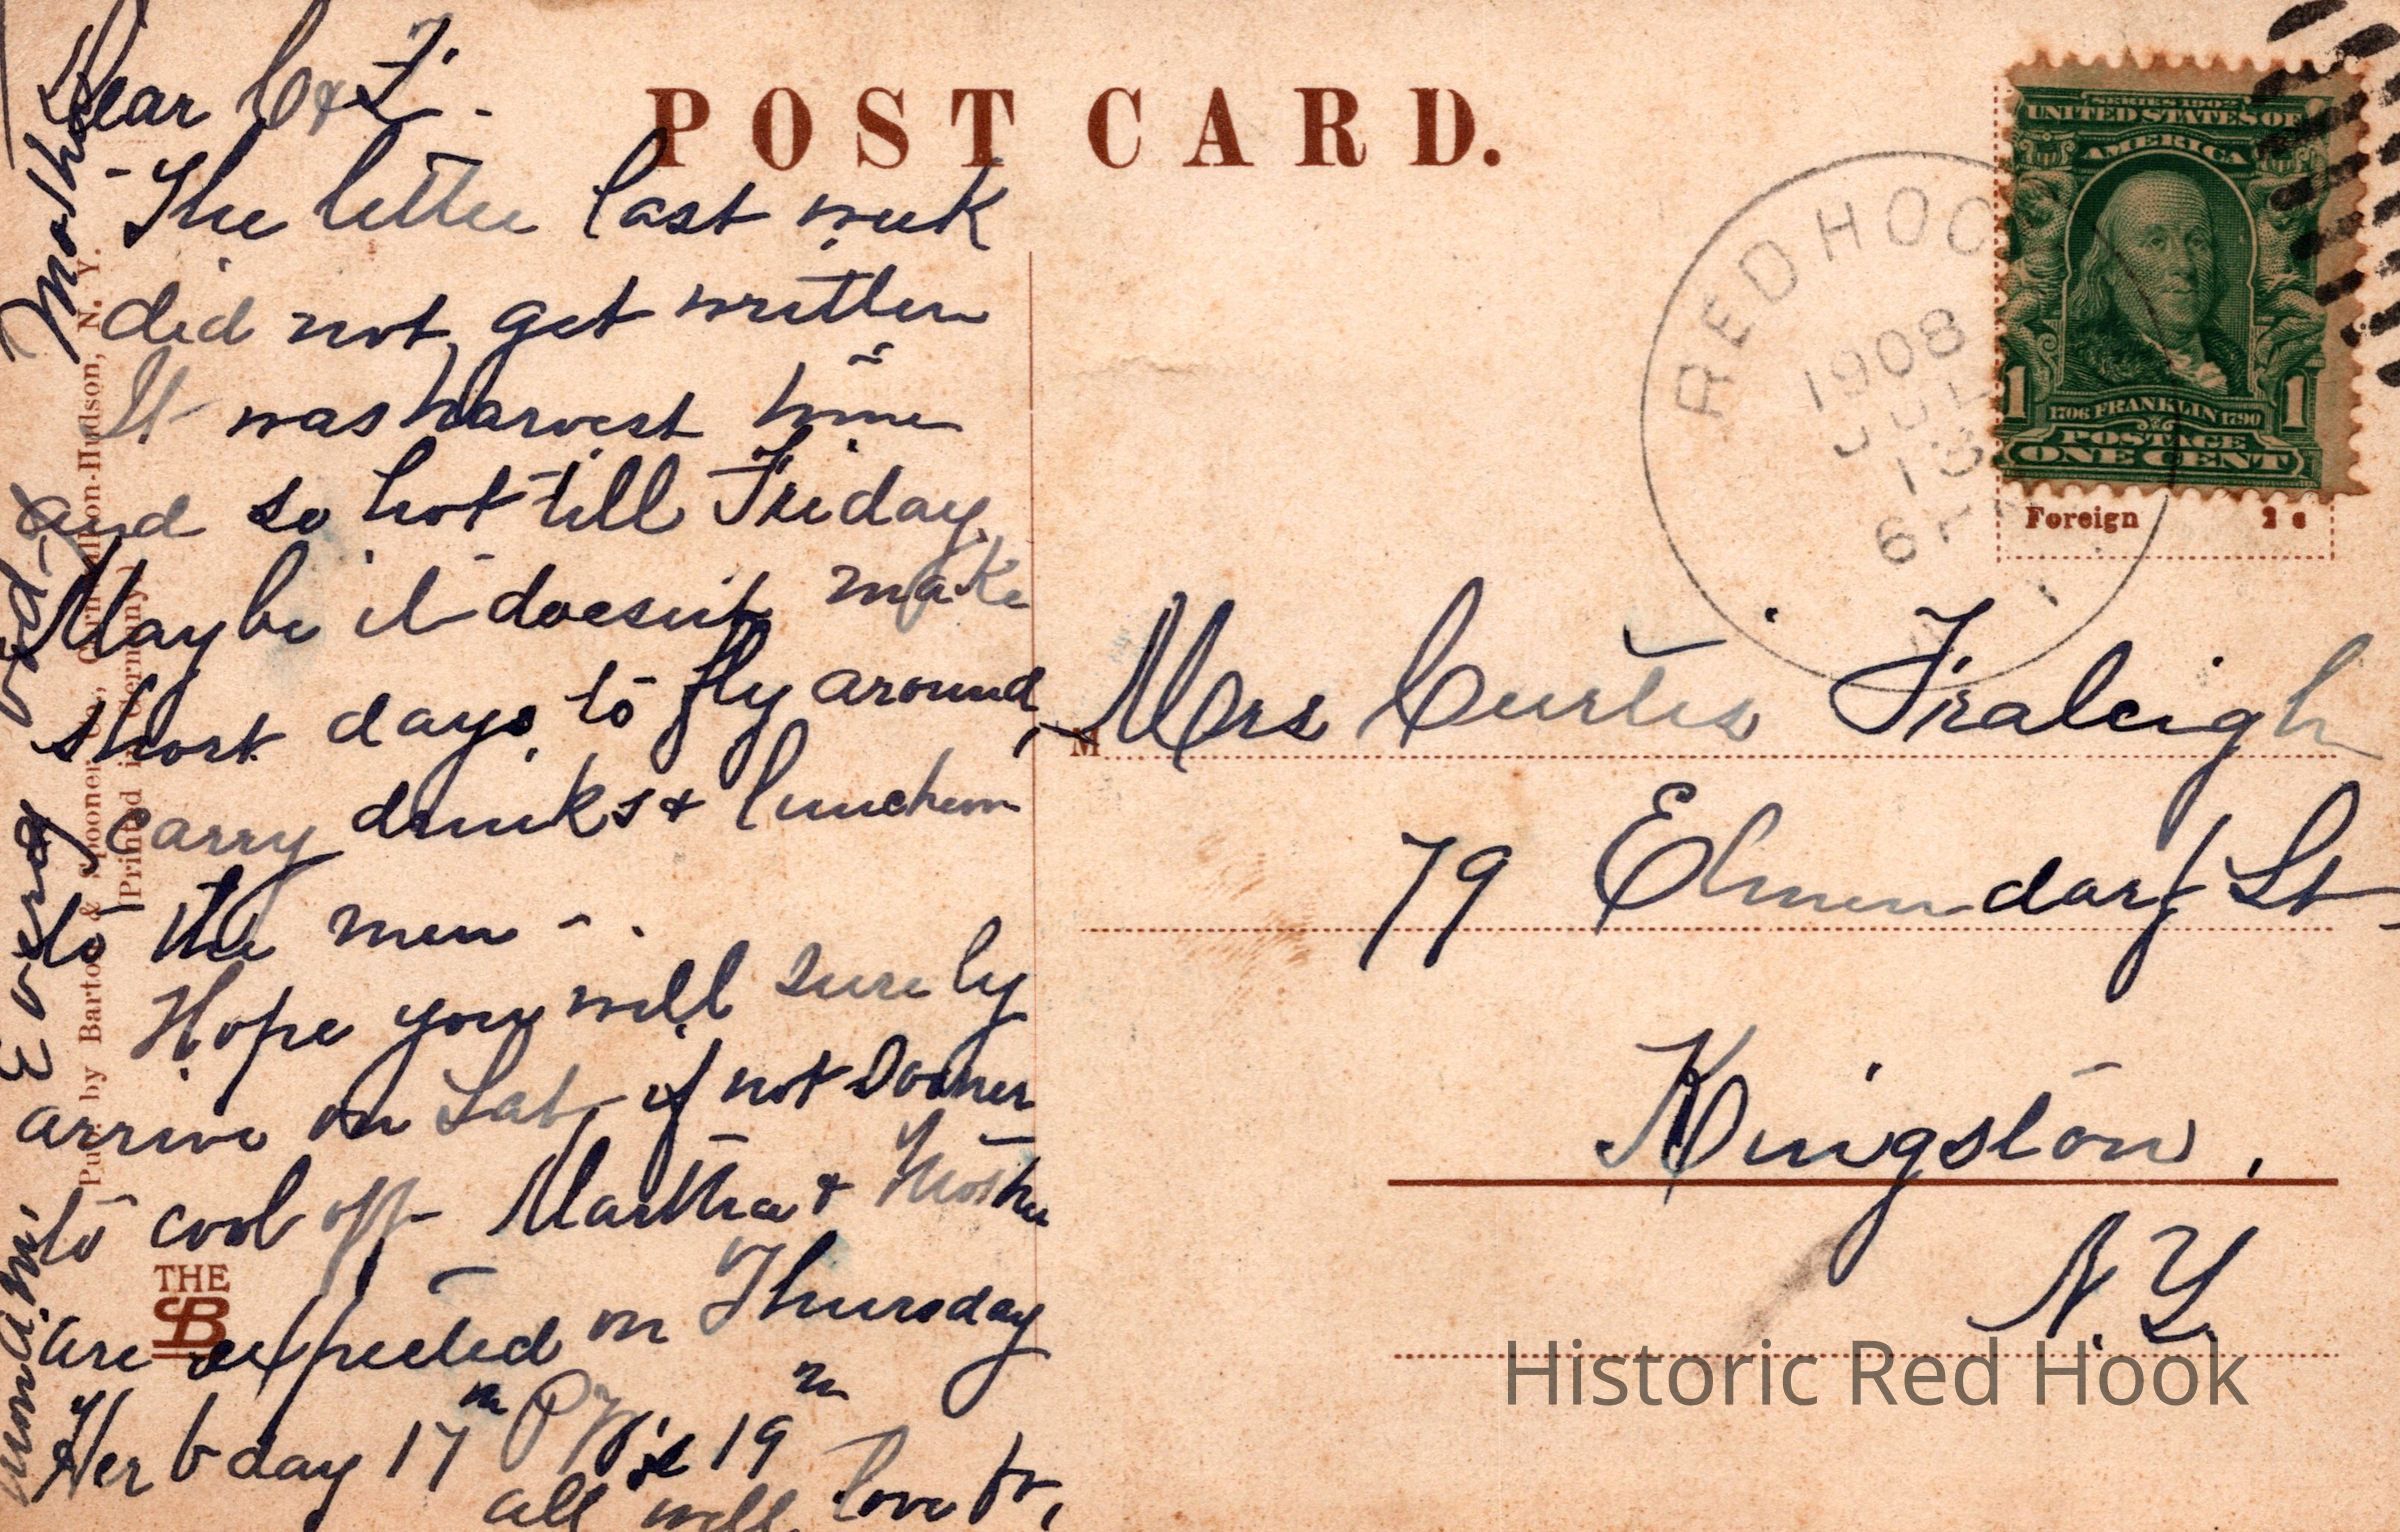 POST CARD.
Dear C & F.
The letter last week
did not get written
It was harvest time
and so hot till Friday.
Maybe it doesnt make
short days to fly around,
carry drinks & luncheon
to the men - .
Hope you will surely
arrive on Sat, if not sooner
to cool off Martha & Mother
are expected on Thursday
Her b day 17th 19th
all well love fr,
Mother
Every
Pub. by Barton & Spooner Co., Cornwall-on-Hudson, N. Y.
[Printed in Germany]
THE
SB
RED HOOK
1908
JUL
13
6
SERIES 1902
UNITED STATES OF
AMERICA
1 1
1706 FRANKLIN 1790
POSTAGE
ONE CENT
Foreign 2 c
M
Mrs Curtis Fraleigh
79 Elmendorf St
Kingston.
N.Y.
Historic Red Hook